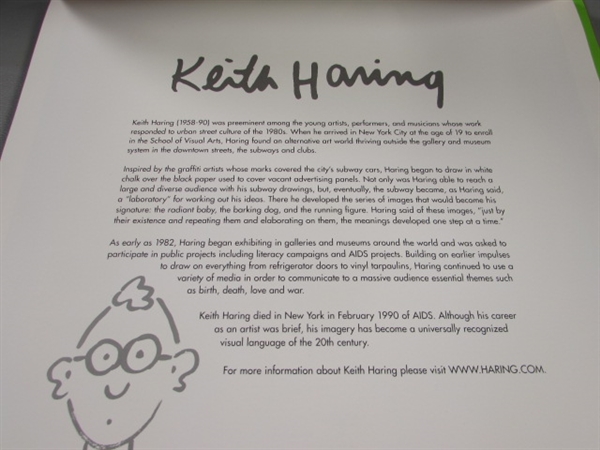 Keith Haring
Keith Haring (1958-90) was preeminent among the young artists, performers, and musicians whose work
responded to urban street culture of the 1980s. When he arrived in New York City at the age of 19 to enroll
in the School of Visual Arts, Haring found an alternative art world thriving outside the gallery and museum
system in the downtown streets, the subways and clubs.
Inspired by the graffiti artists whose marks covered the city's subway cars, Haring began to draw in white
chalk over the black paper used to cover vacant advertising panels. Not only was Haring able to reach a
large and diverse audience with his subway drawings, but, eventually, the subway became, as Haring said,
a "laboratory" for working out his ideas. There he developed the series of images that would become his
signature: the radiant baby, the barking dog, and the running figure. Haring said of these images, "just by
their existence and repeating them and elaborating on them, the meanings developed one step at a time."
As early as 1982, Haring began exhibiting in galleries and museums around the world and was asked to
participate in public projects including literacy campaigns and AIDS projects. Building on earlier impulses
to draw on everything from refrigerator doors to vinyl tarpaulins, Haring continued to use a
variety of media in order to communicate to a massive audience essential themes such
as birth, death, love and war.
Keith Haring died in New York in February 1990 of AIDS. Although his career
as an artist was brief, his imagery has become a universally recognized
visual language of the 20th century.
For more information about Keith Haring please visit WWW.HARING.COM.